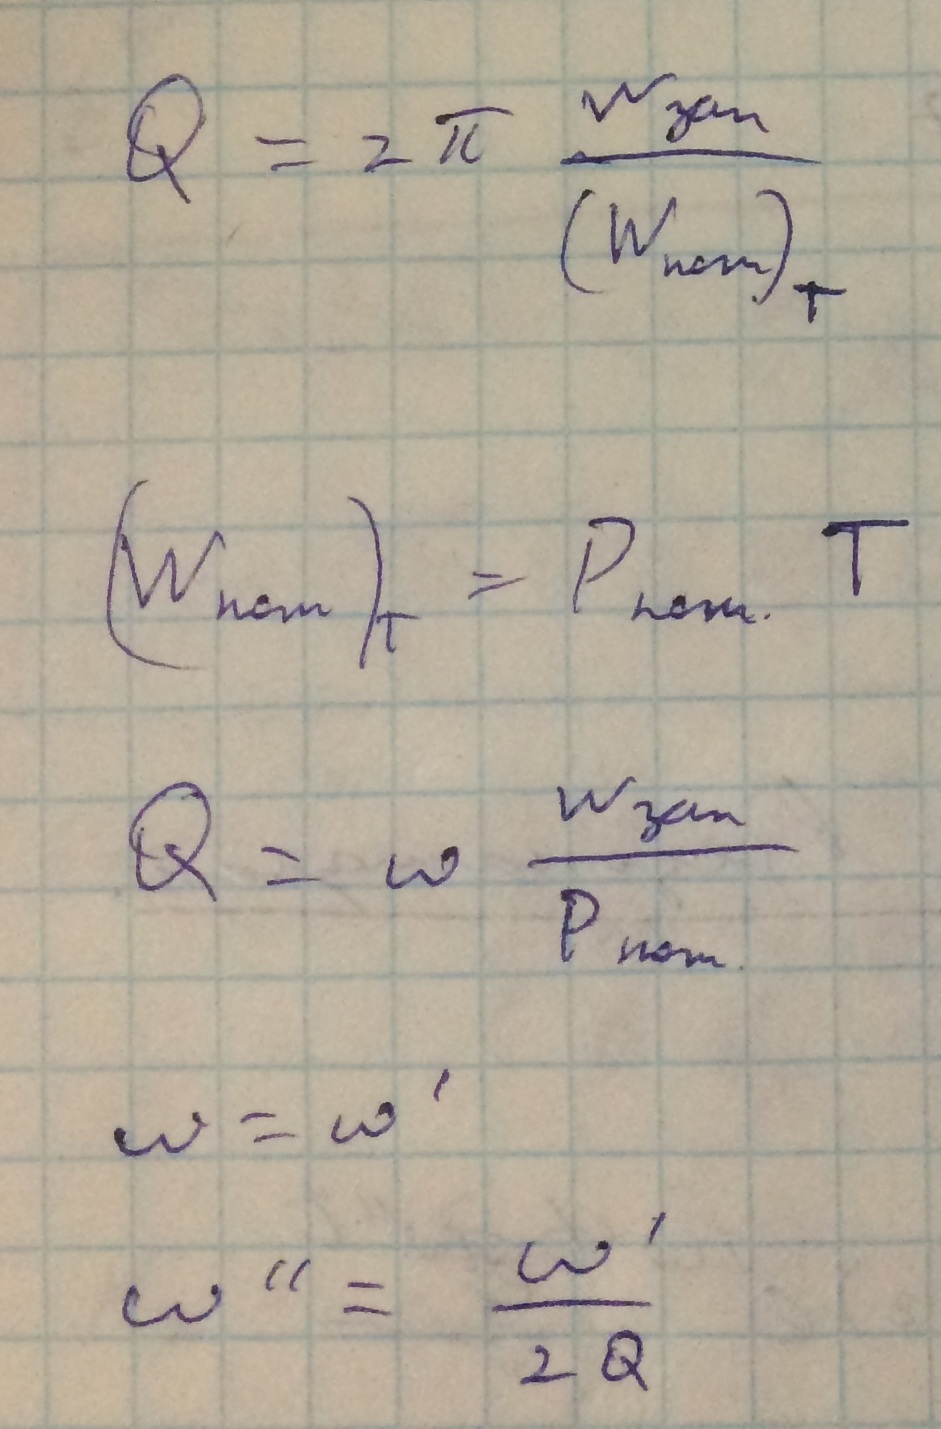 Q = 2π Wзап / (Wпот)T
(Wпот)T = Pпот. T
Q = ω Wзап / Pпот.
ω = ω'
ω'' = ω' / 2Q